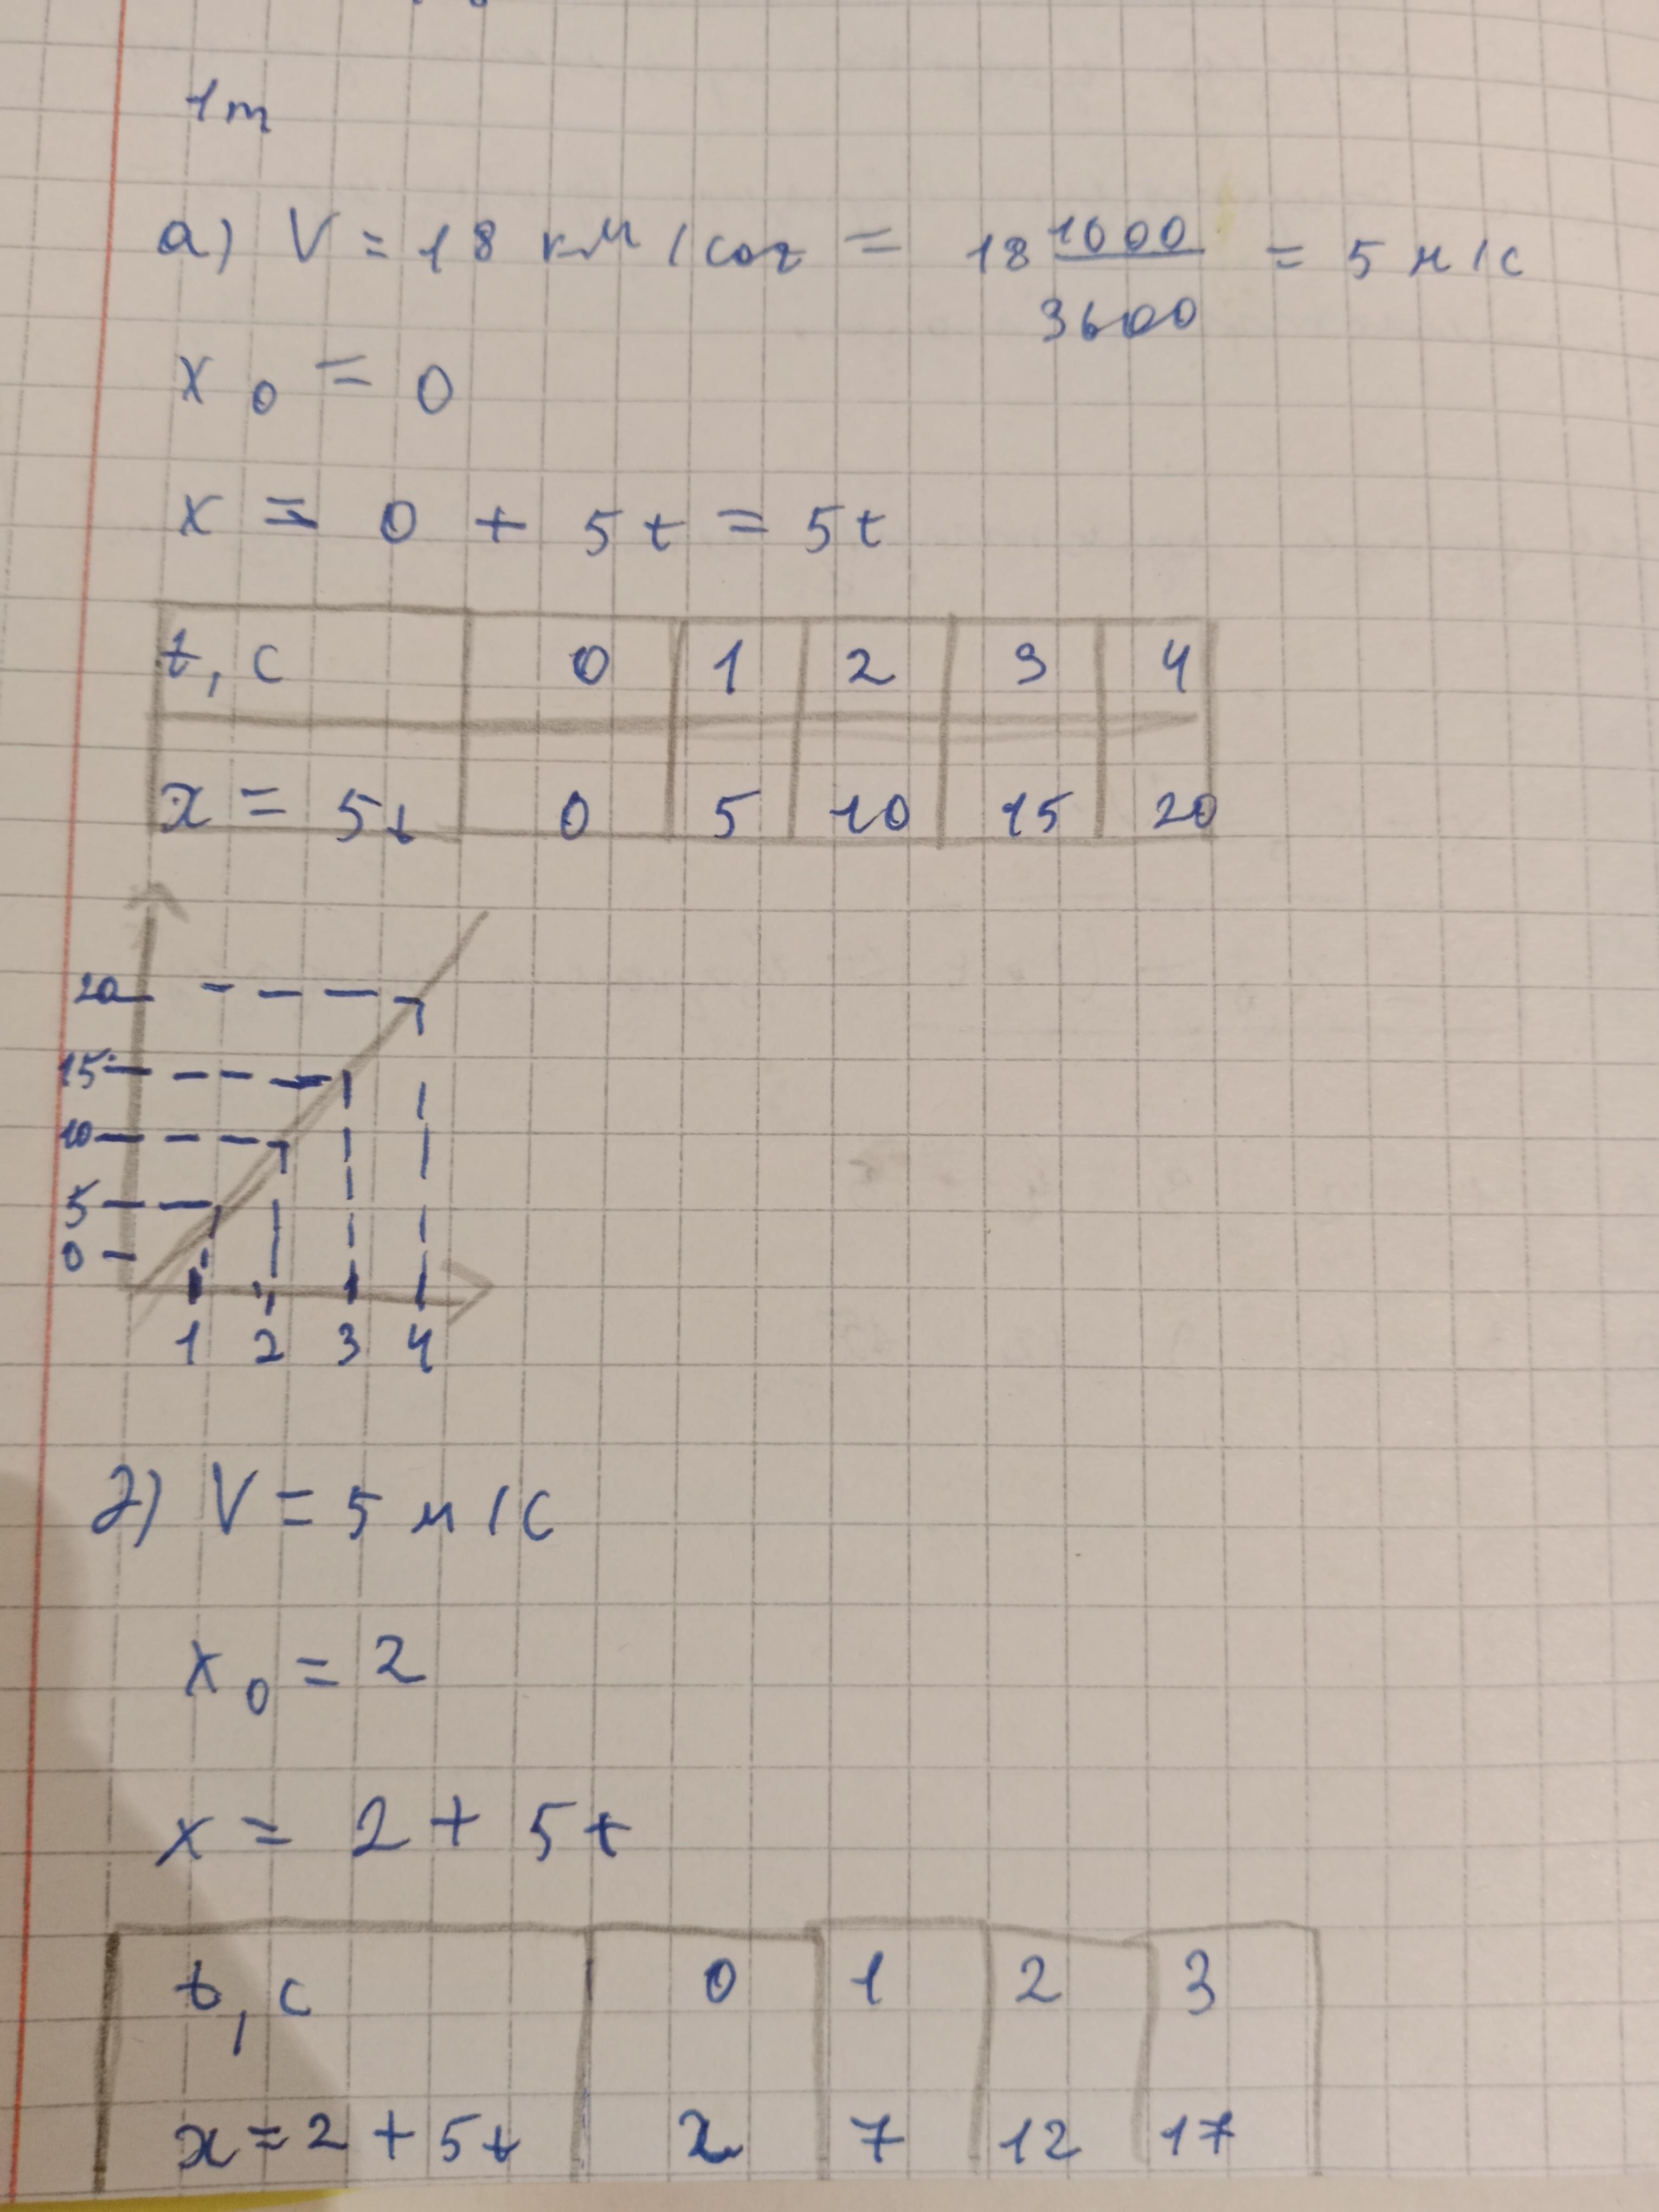 1m
а) V = 18 км/саг = 18 1000/3600 = 5 м/с
x₀ = 0
x = 0 + 5t = 5t
t, c 0 1 2 3 4
x = 5t 0 5 10 15 20
20
15
10
5
0
1 2 3 4
д) V = 5 м/с
x₀ = 2
x = 2 + 5t
t, c 0 1 2 3
x = 2 + 5t 2 7 12 17